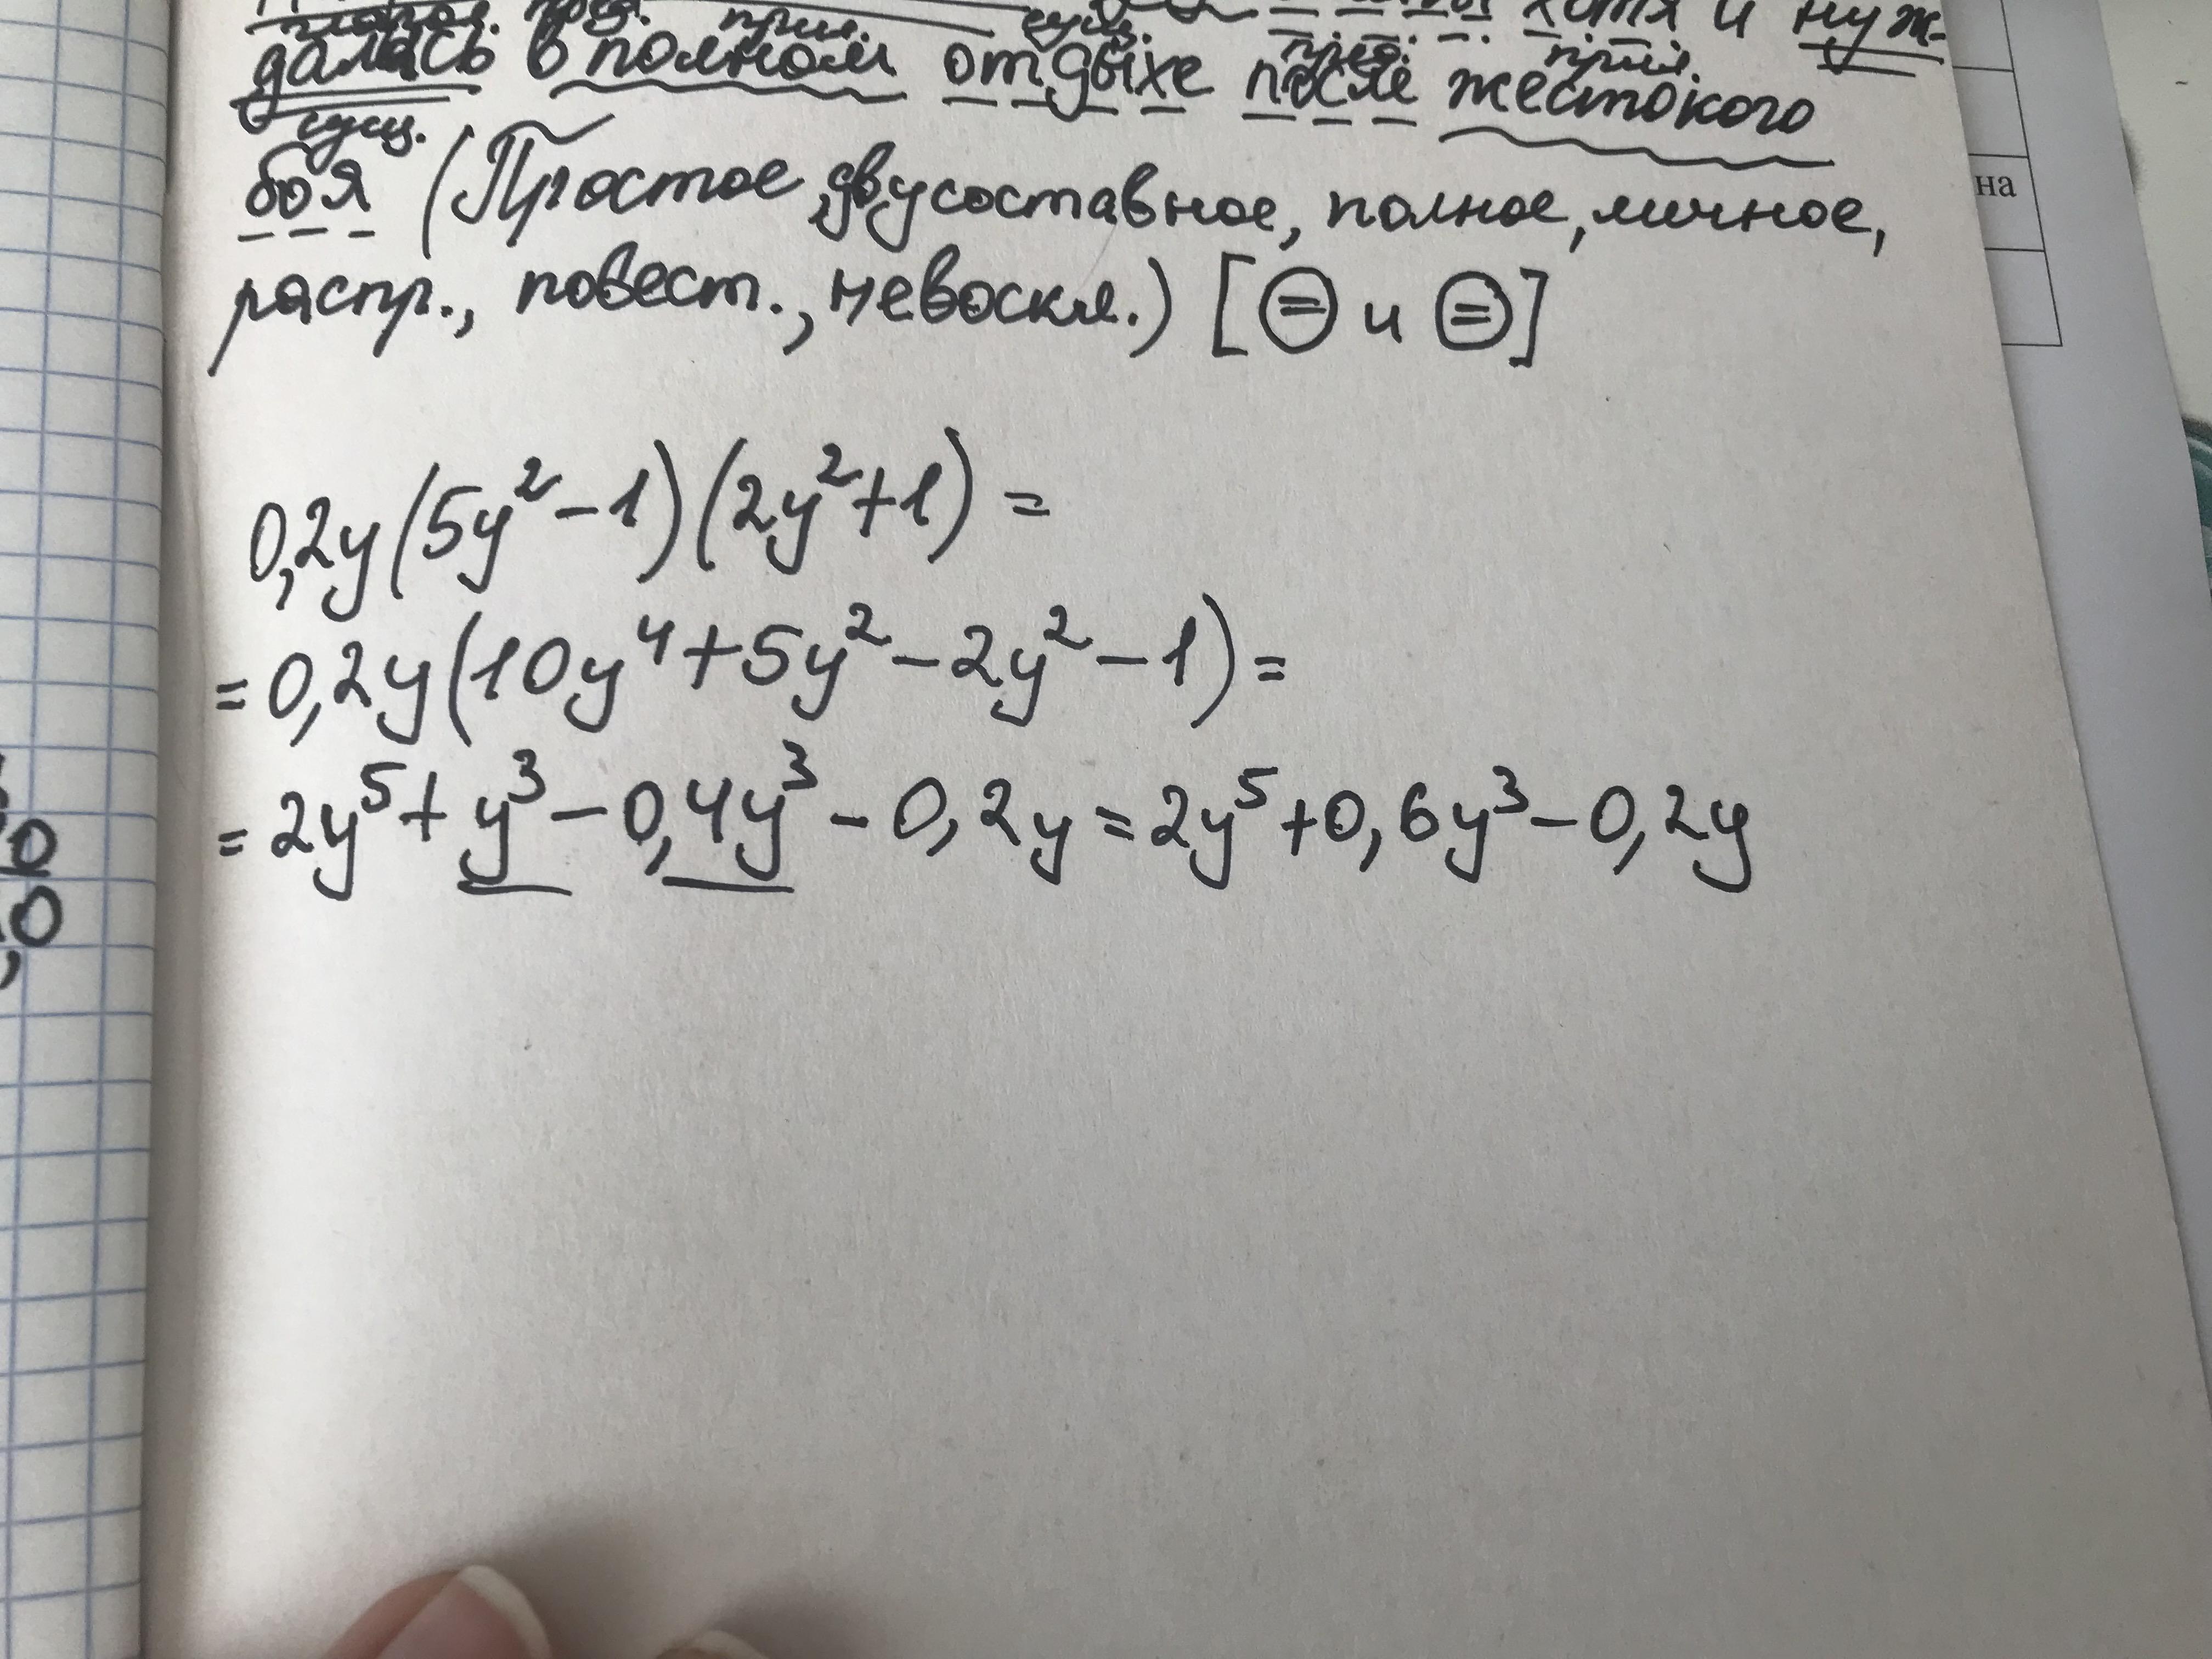 хотя и нуж-
глагол. пред. прил. сущ. пред. прил.
далась в полном отдыхе после жестокого
сущ.
боя (Простое, двусоставное, полное, личное,
распр., повест., невоскл.) [= и =]
на
0,2y(5y²-1)(2y²+1)=
=0,2y(10y⁴+5y²-2y²-1)=
=2y⁵+y³-0,4y³-0,2y=2y⁵+0,6y³-0,2y
0
,0